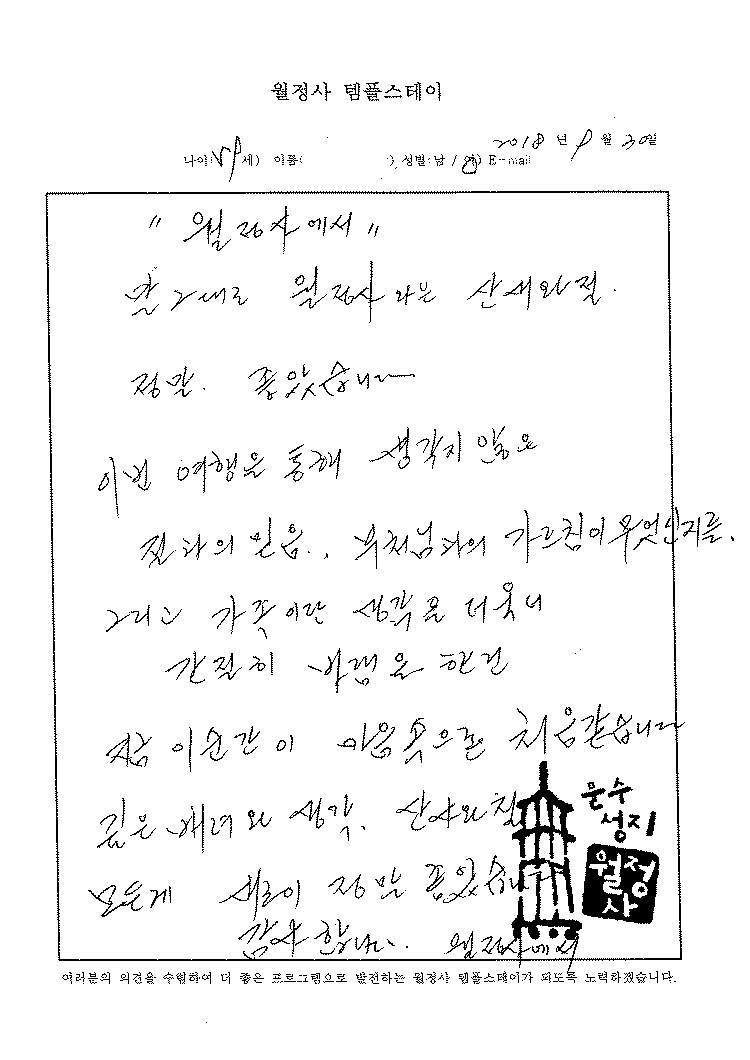 월정사 템플스테이
2018 년 9 월 30일
나이( 59 세) 이름( ) 성별(남 / 여) E-mail
" 월정사에서 "
말 그대로 월정사라는 산세와 절.
정말. 좋았습니다
이번 여행을 통해 생각지 않은
믿음.. 부처님과의 가르침이 무엇인지를.
그리고 가족이란 생각을 더욱더
간절히 바램을 한건
지금 이순간이 마음속으로 처음같습니다
깊은 배려와 생각. 산사와 절
모든게 새로이 정말 좋았습니다
감사합니다. 월정사에서
문수
성지
월정
사
여러분의 의견을 수렴하여 더 좋은 프로그램으로 발전하는 월정사 템플스테이가 되도록 노력하겠습니다.